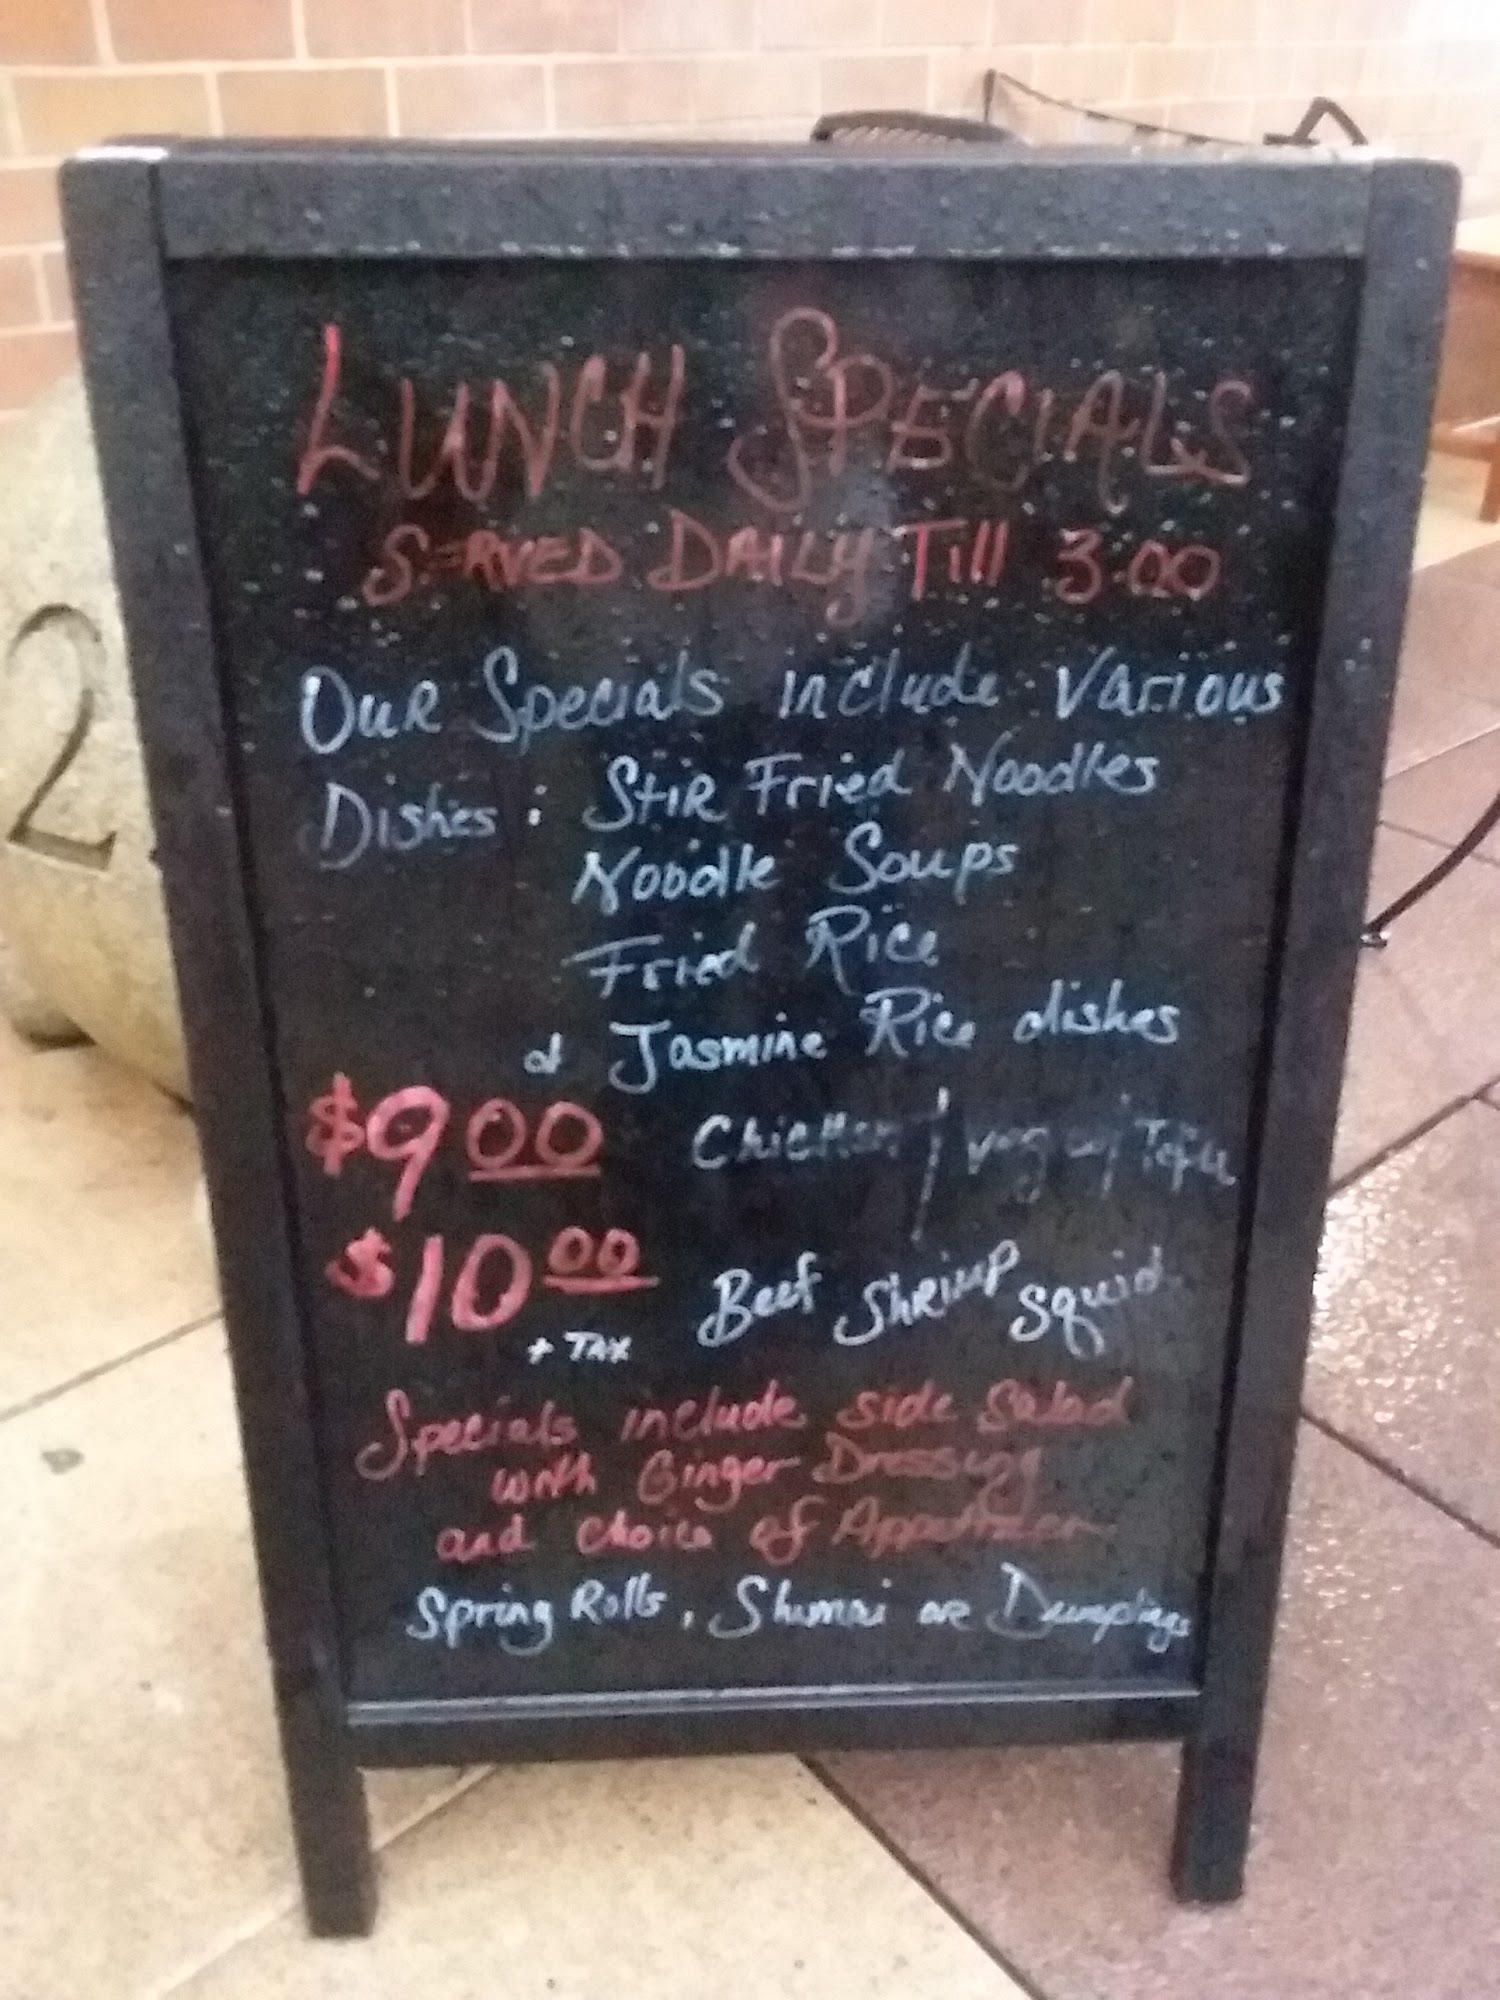 LUNCH SPECIALS
SERVED DAILY Till 3:00
OUR Specials include Various
Dishes : StiR Fried Noodles
Noodle Soups
Fried Rice
& Jasmine Rice dishes
$9 00 Chicken / veg w/ Tofu
$10 00 Beef Shrimp Squid
+ TAX
Specials include side Salad
with Ginger Dressing
and choice of Appetizer
Spring Rolls, Shumai or Dumplings
2